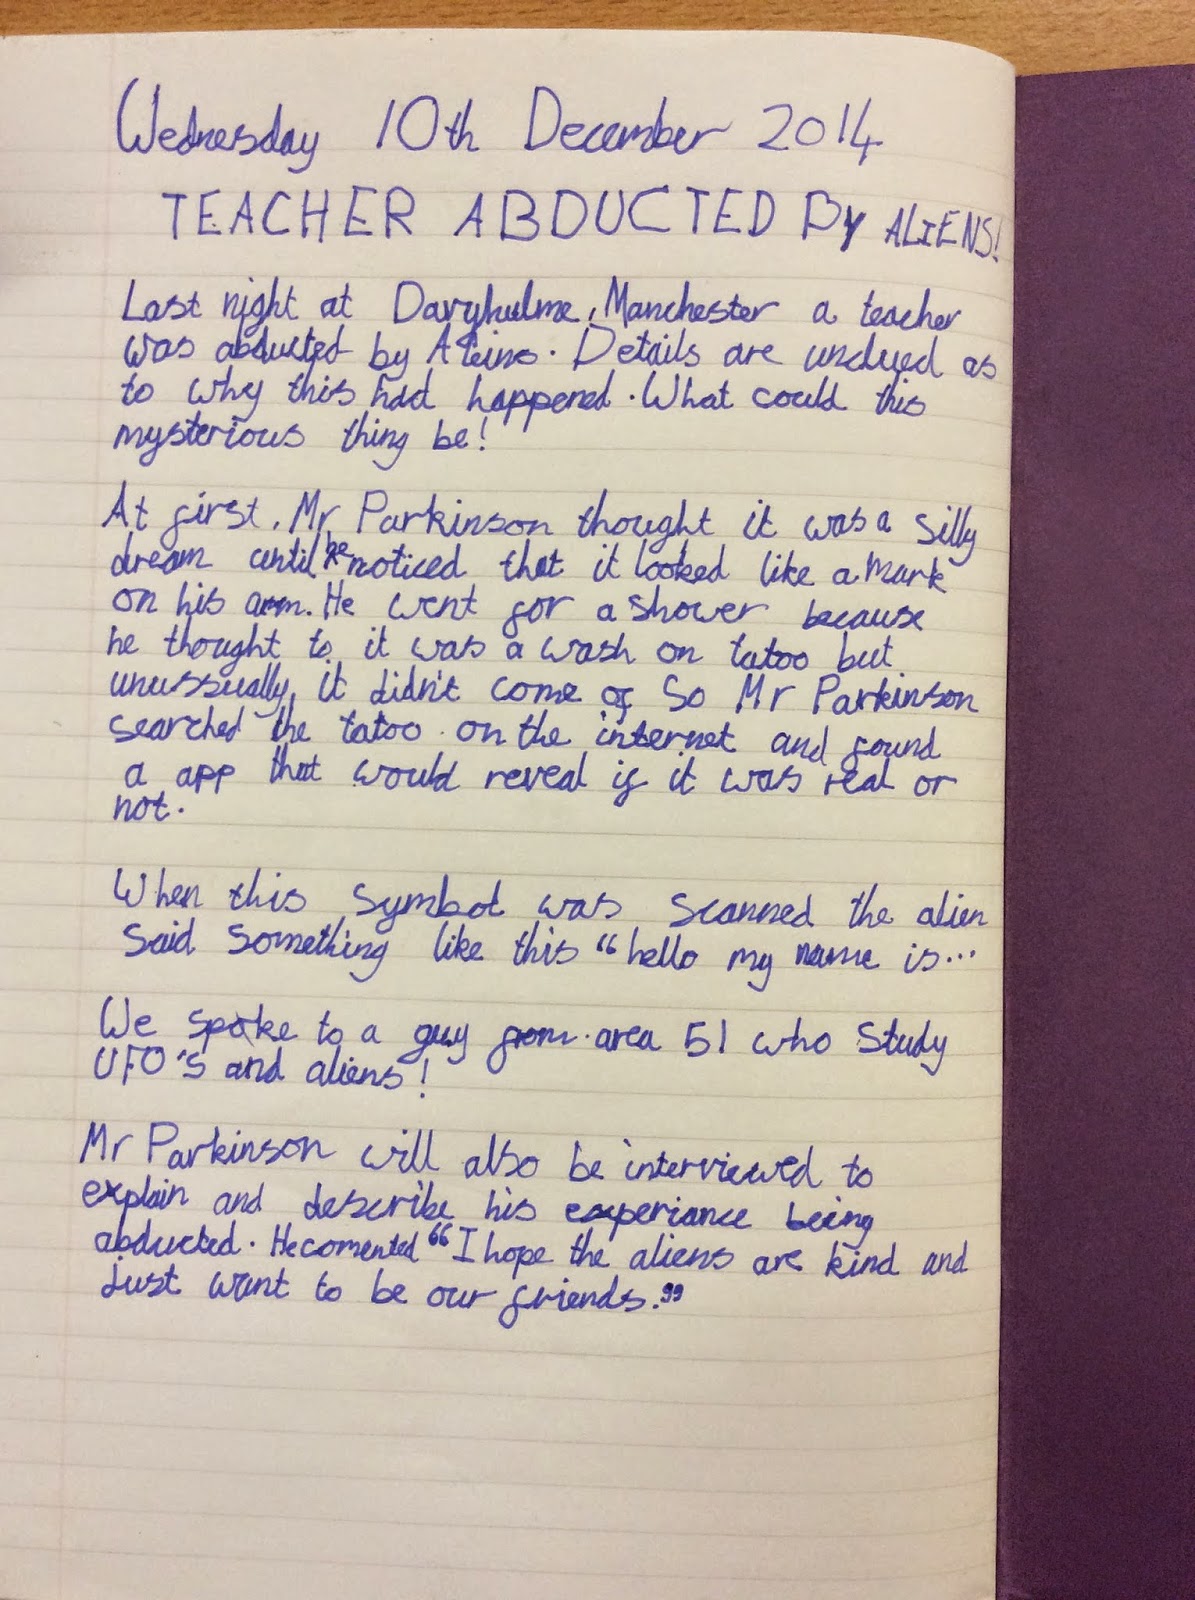 Wednesday 10th December 2014
TEACHER ABDUCTED By ALIENS!
Last night at Davyhulme, Manchester a teacher
was abducted by Aleins. Details are unclued as
to why this had happened. What could this
mysterious thing be!
At first, Mr Parkinson thought it was a silly
dream until he noticed that it looked like a mark
on his arm. He went for a shower because
he thought to it was a wash on tatoo but
unussually, it didn't come of So Mr Parkinson
searched the tatoo on the internet and found
a app that would reveal if it was real or
not.
When this symbot was scanned the alien
said something like this "hello my name is...
We spoke to a guy from area 51 who study
UFO's and aliens!
Mr Parkinson will also be interviewed to
explain and describe his experiance being
abducted. He comented "I hope the aliens are kind and
Just want to be our friends."